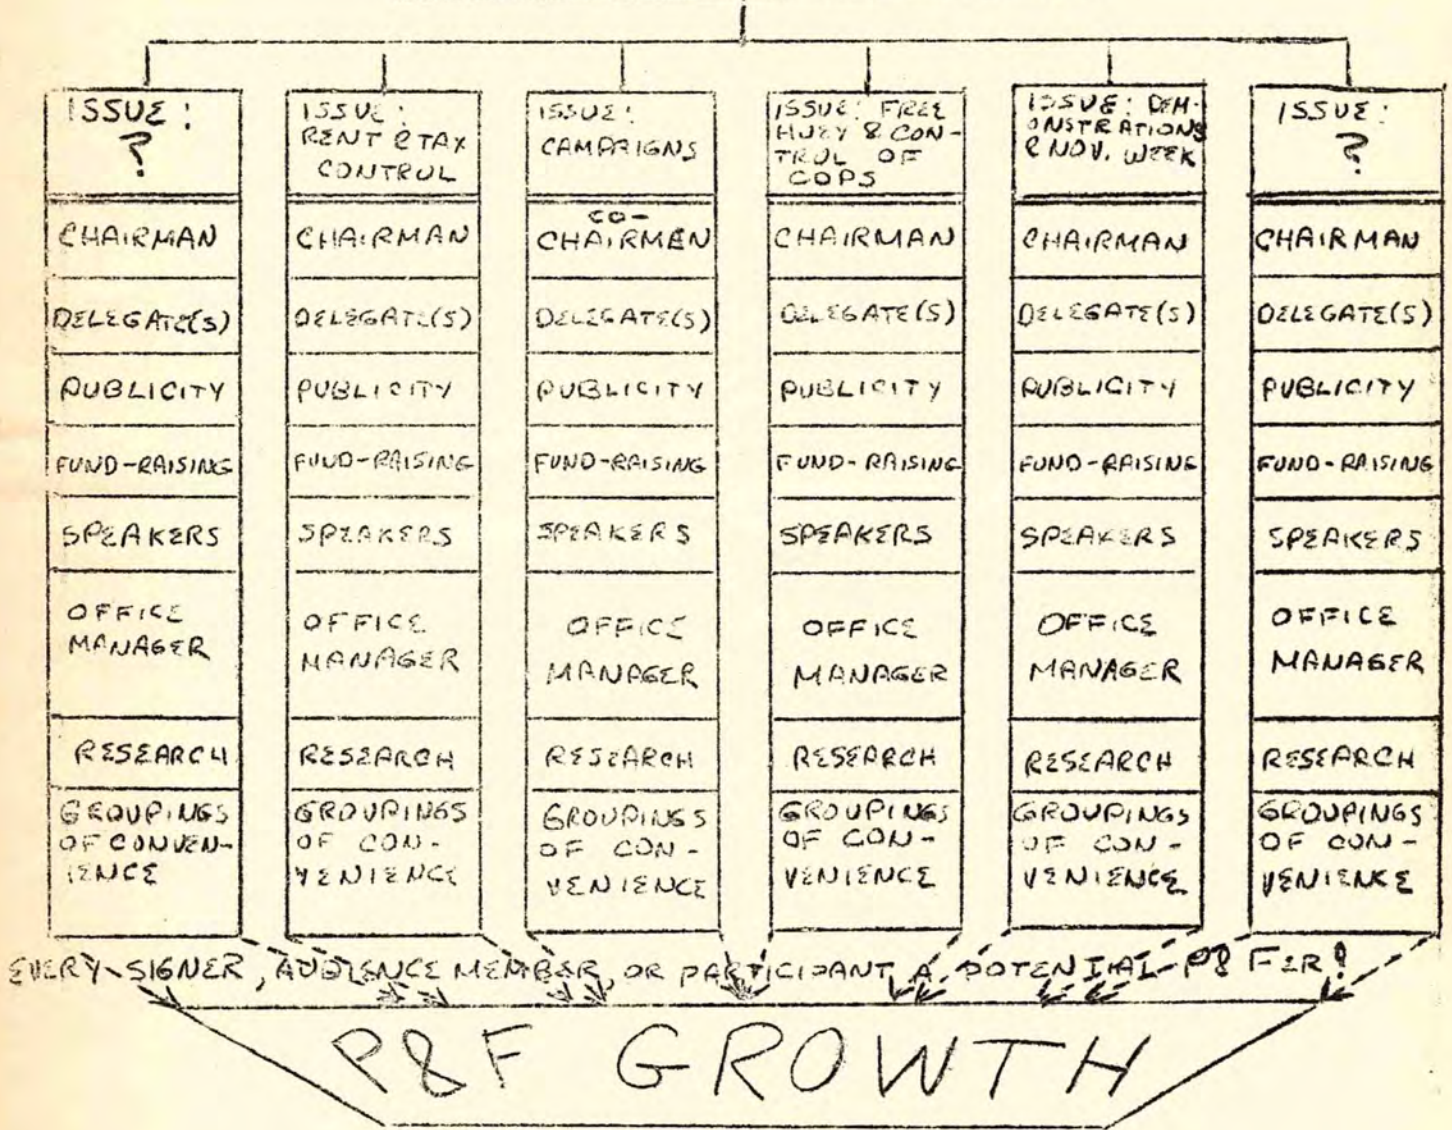 ISSUE:
?
CHAIRMAN
DELEGATE(S)
PUBLICITY
FUND-RAISING
SPEAKERS
OFFICE
MANAGER
RESEARCH
GROUPINGS
OF CONVEN-
IENCE
ISSUE:
RENT & TAX
CONTROL
CHAIRMAN
DELEGATE(S)
PUBLICITY
FUND-RAISING
SPEAKERS
OFFICE
MANAGER
RESEARCH
GROUPINGS
OF CON-
VENIENCE
ISSUE:
CAMPAIGNS
CO-
CHAIRMEN
DELEGATE(S)
PUBLICITY
FUND-RAISING
SPEAKERS
OFFICE
MANAGER
RESEARCH
GROUPINGS
OF CON-
VENIENCE
ISSUE: FREE
HUEY & CON-
TROL OF
COPS
CHAIRMAN
DELEGATE(S)
PUBLICITY
FUND-RAISING
SPEAKERS
OFFICE
MANAGER
RESEARCH
GROUPINGS
OF CON-
VENIENCE
ISSUE: DEM-
ONSTRATIONS
& NOV. WEEK
CHAIRMAN
DELEGATE(S)
PUBLICITY
FUND-RAISING
SPEAKERS
OFFICE
MANAGER
RESEARCH
GROUPINGS
OF CON-
VENIENCE
ISSUE:
?
CHAIRMAN
DELEGATE(S)
PUBLICITY
FUND-RAISING
SPEAKERS
OFFICE
MANAGER
RESEARCH
GROUPINGS
OF CON-
VENIENCE
EVERY SIGNER, AUDIENCE MEMBER, OR PARTICIPANT A POTENTIAL P&FER!
P&F GROWTH